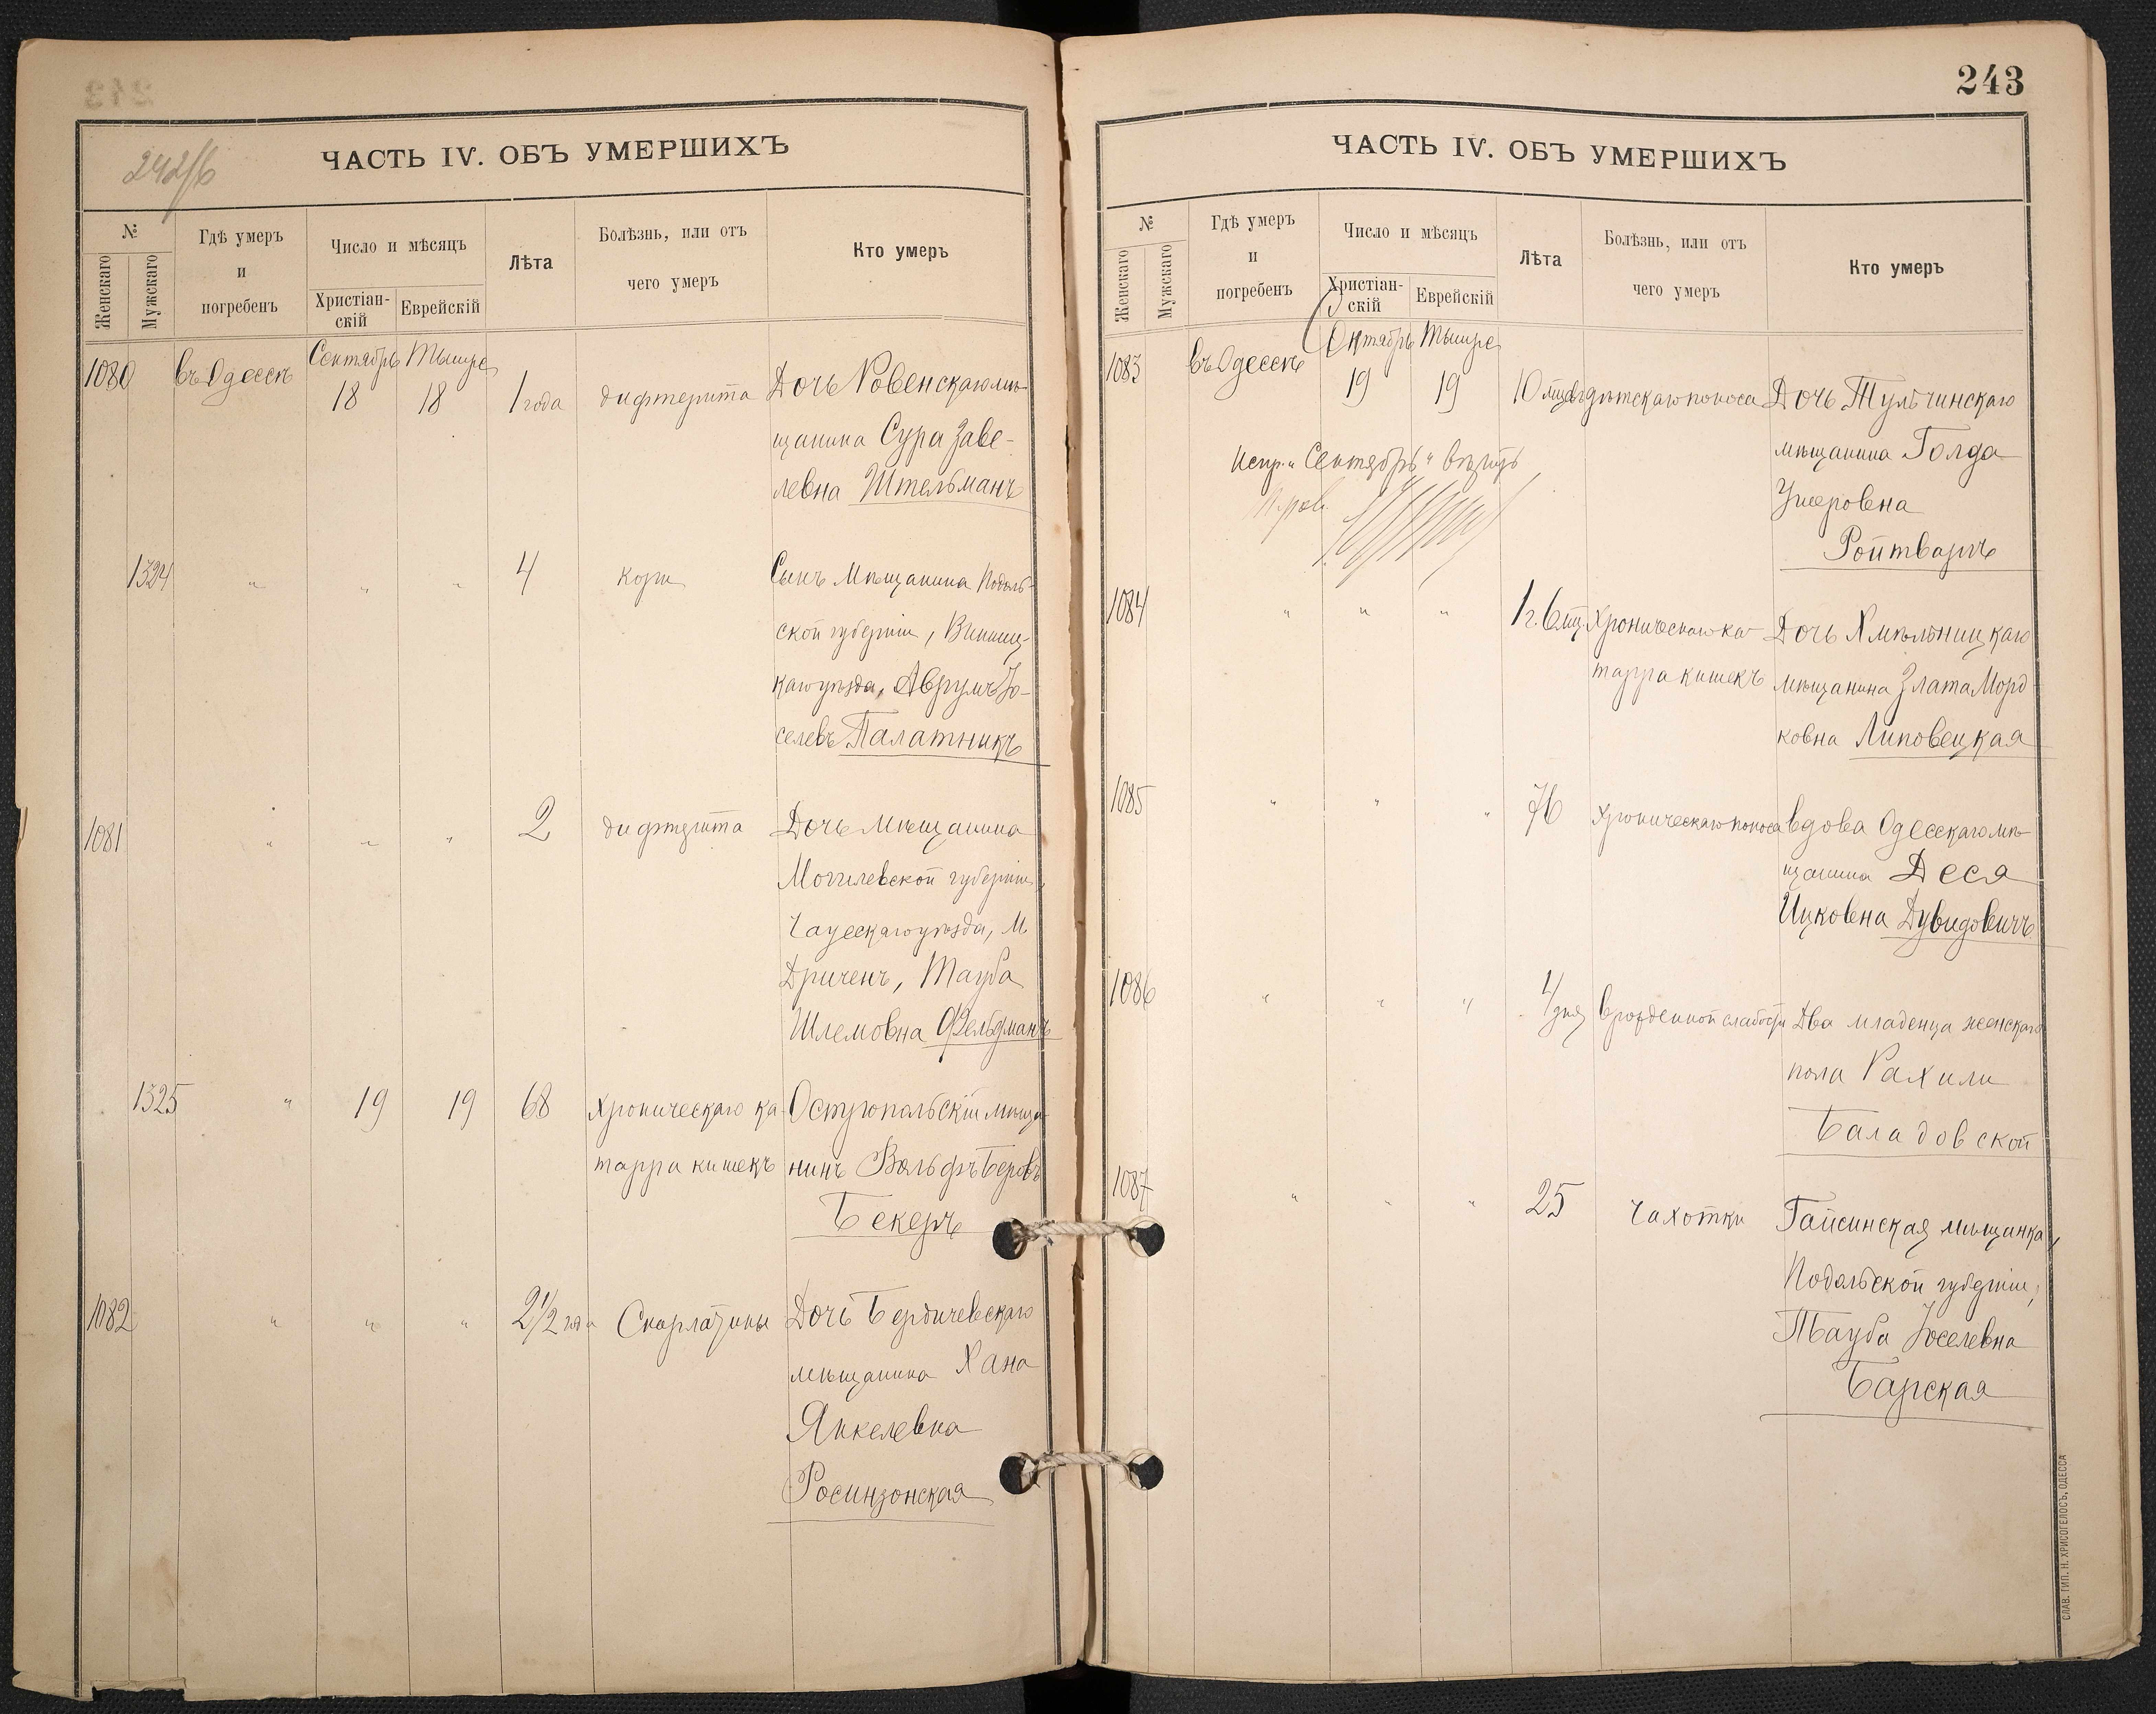 243
242/б
ЧАСТЬ IV. ОБЪ УМЕРШИХЪ
№
Женскаго
Мужскаго
Гдѣ умеръ
и
погребенъ
Число и мѣсяцъ
Христіан-
скій
Еврейскій
Лѣта
Болѣзнь, или отъ
чего умеръ
Кто умеръ
1080 въ Одессѣ Сентябрь Тышре
18 18 1 года дифтерита Дочь Ровенскаго мѣ-
щанина Сура Заве-
левна Штельманъ
1324 " " " 4 кори Сынъ Мѣщанина Подоль-
ской губерніи, Винниц-
каго уѣзда, Аврумъ Іо-
селевъ Палатникъ
1081 " " " 2 дифтерита Дочь Мѣщанина
Могилевской губерніи,
Чаусскаго уѣзда, М.
Дриченъ, Тауба
Шлемовна Фельдманъ
1325 " 19 19 68 Хроническаго ка- Остропольскій мѣща-
тарра кишекъ нинъ Вольфъ Беровъ
Бекеръ
1082 " " " 2 1/2 года Скарлатины Дочь Бердичевскаго
мѣщанина Хана
Янкелевна
Росинзонская
243
ЧАСТЬ IV. ОБЪ УМЕРШИХЪ
№
Женскаго
Мужскаго
Гдѣ умеръ
и
погребенъ
Число и мѣсяцъ
Христіан-
скій
Еврейскій
Лѣта
Болѣзнь, или отъ
чего умеръ
Кто умеръ
1083 въ Одессѣ Октябрь Тышре
19 19 10 мцвъ дѣтскаго поноса Дочь Тульчинскаго
мѣщанина Голда
Ушеровна
Ройтваргъ
Испр. "Сентябрь" вѣрить
1084 " " " 1 г. 6 мц. Хроническаго ка- Дочь Хмѣльницкаго
тарра кишекъ мѣщанина Злата Морд-
ковна Липовецкая
1085 " " " 76 Хроническаго поноса вдова Одесскаго мѣ-
щанина Деся
Ицковна Дувидовичъ
1086 " " " 4 дня врожденной слабости Два младенца женскаго
пола Рахили
Баладовской
1087 " " " 25 Чахотки Гайсинская мѣщанка,
Подольской губерніи,
Тауба Іоселевна
Барская
СЛАВ. ТИП. Н. ХРИСОГЕЛОСЪ, ОДЕССА